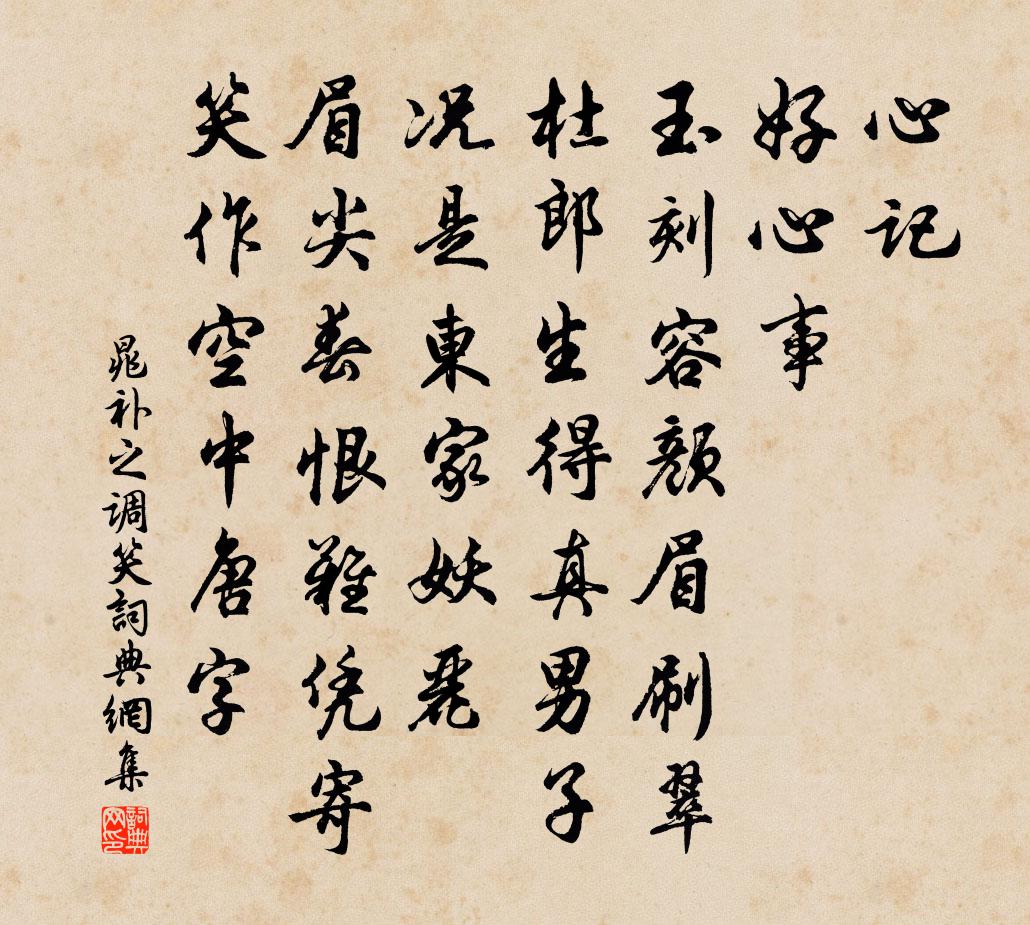 心记
好心事
玉刻容颜眉刷翠
杜郎生得真男子
况是東家妖麗
眉尖春恨難凭寄
笑作空中唐字
晁补之调笑詞典網集
詞典网印